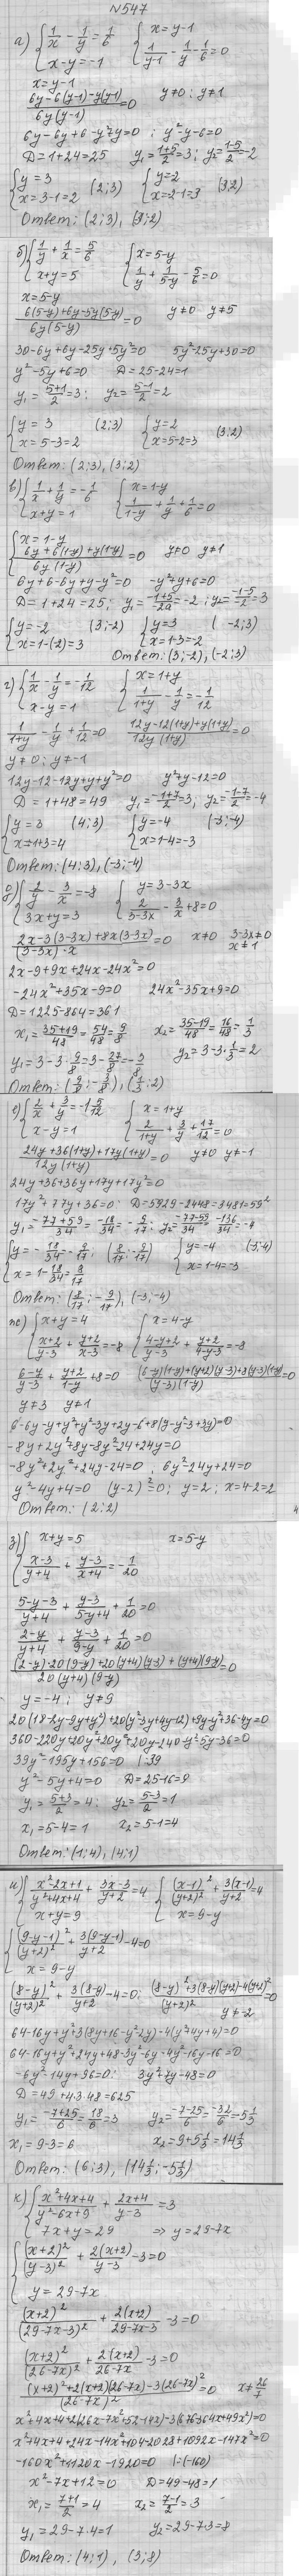 N547
а) { 1/x - 1/y = 1/6   { x = y-1
x-y = -1   1/(y-1) - 1/y - 1/6 = 0
x = y-1
(6y-6(y-1)-y(y-1))/(6y(y-1)) = 0   y≠0; y≠1
6y-6y+6-y²+y=0; y²-y-6=0
D=1+24=25   y₁=(1+5)/2=3; y₂=(1-5)/2=-2
{ y=3   { y=2
x=3-1=2   (2;3)   x=2-1=3   (3;2)
Ответ: (2;3), (3;2)
б) { 1/y + 1/x = 5/6   { x=5-y
x+y=5   1/y + 1/(5-y) - 5/6 = 0
x=5-y
(6(5-y)+6y-5y(5-y))/(6y(5-y)) = 0   y≠0 y≠5
30-6y+6y-25y+5y²=0   5y²-25y+30=0
y²-5y+6=0   D=25-24=1
y₁=(5+1)/2=3; y₂=(5-1)/2=2
{ y=3   (2;3)   { y=2
x=5-3=2   x=5-2=3   (3;2)
Ответ: (2;3), (3;2)
в) { 1/x + 1/y = -1/6   { x=1-y
x+y=1   1/(1-y) + 1/y + 1/6 = 0
{ x=1-y
(6y+6(1-y)+y(1-y))/(6y(1-y)) = 0   y≠0 y≠1
6y+6-6y+y-y²=0   -y²+y+6=0
D=1+24=25; y₁=(-1+5)/-2a=-2; y₂=(-1-5)/-2=3
{ y=-2   (3;-2)   { y=3   (-2;3)
x=1-(-2)=3   x=1-3=-2
Ответ: (3;-2), (-2;3)
г) { 1/x - 1/y = -1/12   { x=1+y
x-y=1   1/(1+y) - 1/y = -1/12
1/(1+y) - 1/y + 1/12 = 0   (12y-12(1+y)+y(1+y))/(12y(1+y)) = 0
y≠0; y≠-1
12y-12-12y+y+y²=0   y²+y-12=0
D=1+48=49   y₁=(-1+7)/2=3, y₂=(-1-7)/2=-4
{ y=3   (4;3)   { y=-4   (-3;-4)
x=1+3=4   x=1-4=-3
Ответ: (4;3), (-3;-4)
д) { 2/y - 3/x = -8   { y=3-3x
3x+y=3   2/(3-3x) - 3/x + 8 = 0
(2x-3(3-3x)+8x(3-3x))/((3-3x)·x) = 0   x≠0   3-3x≠0
x≠1
2x-9+9x+24x-24x²=0
-24x²+35x-9=0   24x²-35x+9=0
D=1225-864=361
x₁=(35+19)/48=54/48=9/8   x₂=(35-19)/48=16/48=1/3
y₁=3-3·9/8=3-27/8=-3/8   y₂=3-3·1/3=2
Ответ: (9/8; -3/8), (1/3; 2)
е) { 2/x + 3/y = -1 5/12   { x=1+y
x-y=1   2/(1+y) + 3/y + 17/12 = 0
(24y+36(1+y)+17y(1+y))/(12y(1+y)) = 0   y≠0 y≠-1
24y+36+36y+17y+17y²=0
17y²+77y+36=0   D=5929-2448=3481=59²
y₁=(-77+59)/34=-18/34=-9/17; y₂=(-77-59)/34=-136/34=-4
{ y=-18/34=-9/17   (8/17; -9/17)   { y=-4   (-3;-4)
x=1-18/34=8/17   x=1-4=-3
Ответ: (8/17; -9/17), (-3;-4)
ж) { x+y=4   { x=4-y
(x+2)/(y-3) + (y+2)/(x-3) = -8   (4-y+2)/(y-3) + (y+2)/(4-y-3) = -8
(6-y)/(y-3) + (y+2)/(1-y) + 8 = 0   ((6-y)(1-y)+(y+2)(y-3)+8(y-3)(1-y))/((y-3)(1-y)) = 0
y≠3 y≠1
6-6y-y+y²+y²-3y+2y-6+8(y-y²-3+3y)=0
-8y+2y²+8y-8y²-24+24y=0
-8y²+2y²+24y-24=0   6y²-24y+24=0
y²-4y+4=0   (y-2)²=0; y=2; x=4-2=2
Ответ: (2;2)
з) { x+y=5   x=5-y
(x-3)/(y+4) + (y-3)/(x+4) = -1/20
(5-y-3)/(y+4) + (y-3)/(5-y+4) + 1/20 = 0
(2-y)/(y+4) + (y-3)/(9-y) + 1/20 = 0
((2-y)·20(9-y)+20(y+4)(y-3)+(y+4)(9-y))/(20(y+4)(9-y)) = 0
y=-4; y≠9
20(18-2y-9y+y²)+20(y²-3y+4y-12)+9y-y²+36-4y=0
360-220y+20y²+20y²+20y-240-y²+5y+36=0
39y²-195y+156=0 |:39
y²-5y+4=0   D=25-16=9
y₁=(5+3)/2=4; y₂=(5-3)/2=1
x₁=5-4=1   x₂=5-1=4
Ответ: (1;4), (4;1)
и) { (x²-2x+1)/(y²+4y+4) + (3x-3)/(y+2) = 4   { (x-1)²/(y+2)² + 3(x-1)/(y+2) = 4
x+y=9   x=9-y
{ (9-y-1)²/(y+2)² + 3(9-y-1)/(y+2) - 4 = 0
x=9-y
(8-y)²/(y+2)² + 3(8-y)/(y+2) - 4 = 0; ((8-y)²+3(8-y)(y+2)-4(y+2)²)/(y+2)² = 0
y≠-2
64-16y+y²+3(8y+16-y²-2y)-4(y²+4y+4)=0
64-16y+y²+24y+48-3y²-6y-4y²-16y-16=0
-6y²-14y+96=0; 3y²+7y-48=0
D=49+4·3·48=625
y₁=(-7+25)/6=18/6=3   y₂=(-7-25)/6=-32/6=-5 1/3
x₁=9-3=6   x₂=9+5 1/3=14 1/3
Ответ: (6;3), (14 1/3; -5 1/3)
к) { (x²+4x+4)/(y²-6x+9) + (2x+4)/(y-3) = 3
7x+y=29   ⇒ y=29-7x
{ (x+2)²/(y-3)² + 2(x+2)/(y-3) - 3 = 0
y=29-7x
(x+2)²/(29-7x-3)² + 2(x+2)/(29-7x-3) - 3 = 0
(x+2)²/(26-7x)² + 2(x+2)/(26-7x) - 3 = 0
((x+2)²+2(x+2)(26-7x)-3(26-7x)²)/(26-7x)² = 0   x≠26/7
x²+4x+4+2(26x-7x²+52-14x)-3(676-364x+49x²)=0
x²+4x+4+24x-14x²+104-2028+1092x-147x²=0
-160x²+1120x-1920=0 |:(-160)
x²-7x+12=0   D=49-48=1
x₁=(7+1)/2=4   x₂=(7-1)/2=3
y₁=29-7·4=1   y₂=29-7·3=8
Ответ: (4;1), (3;8)